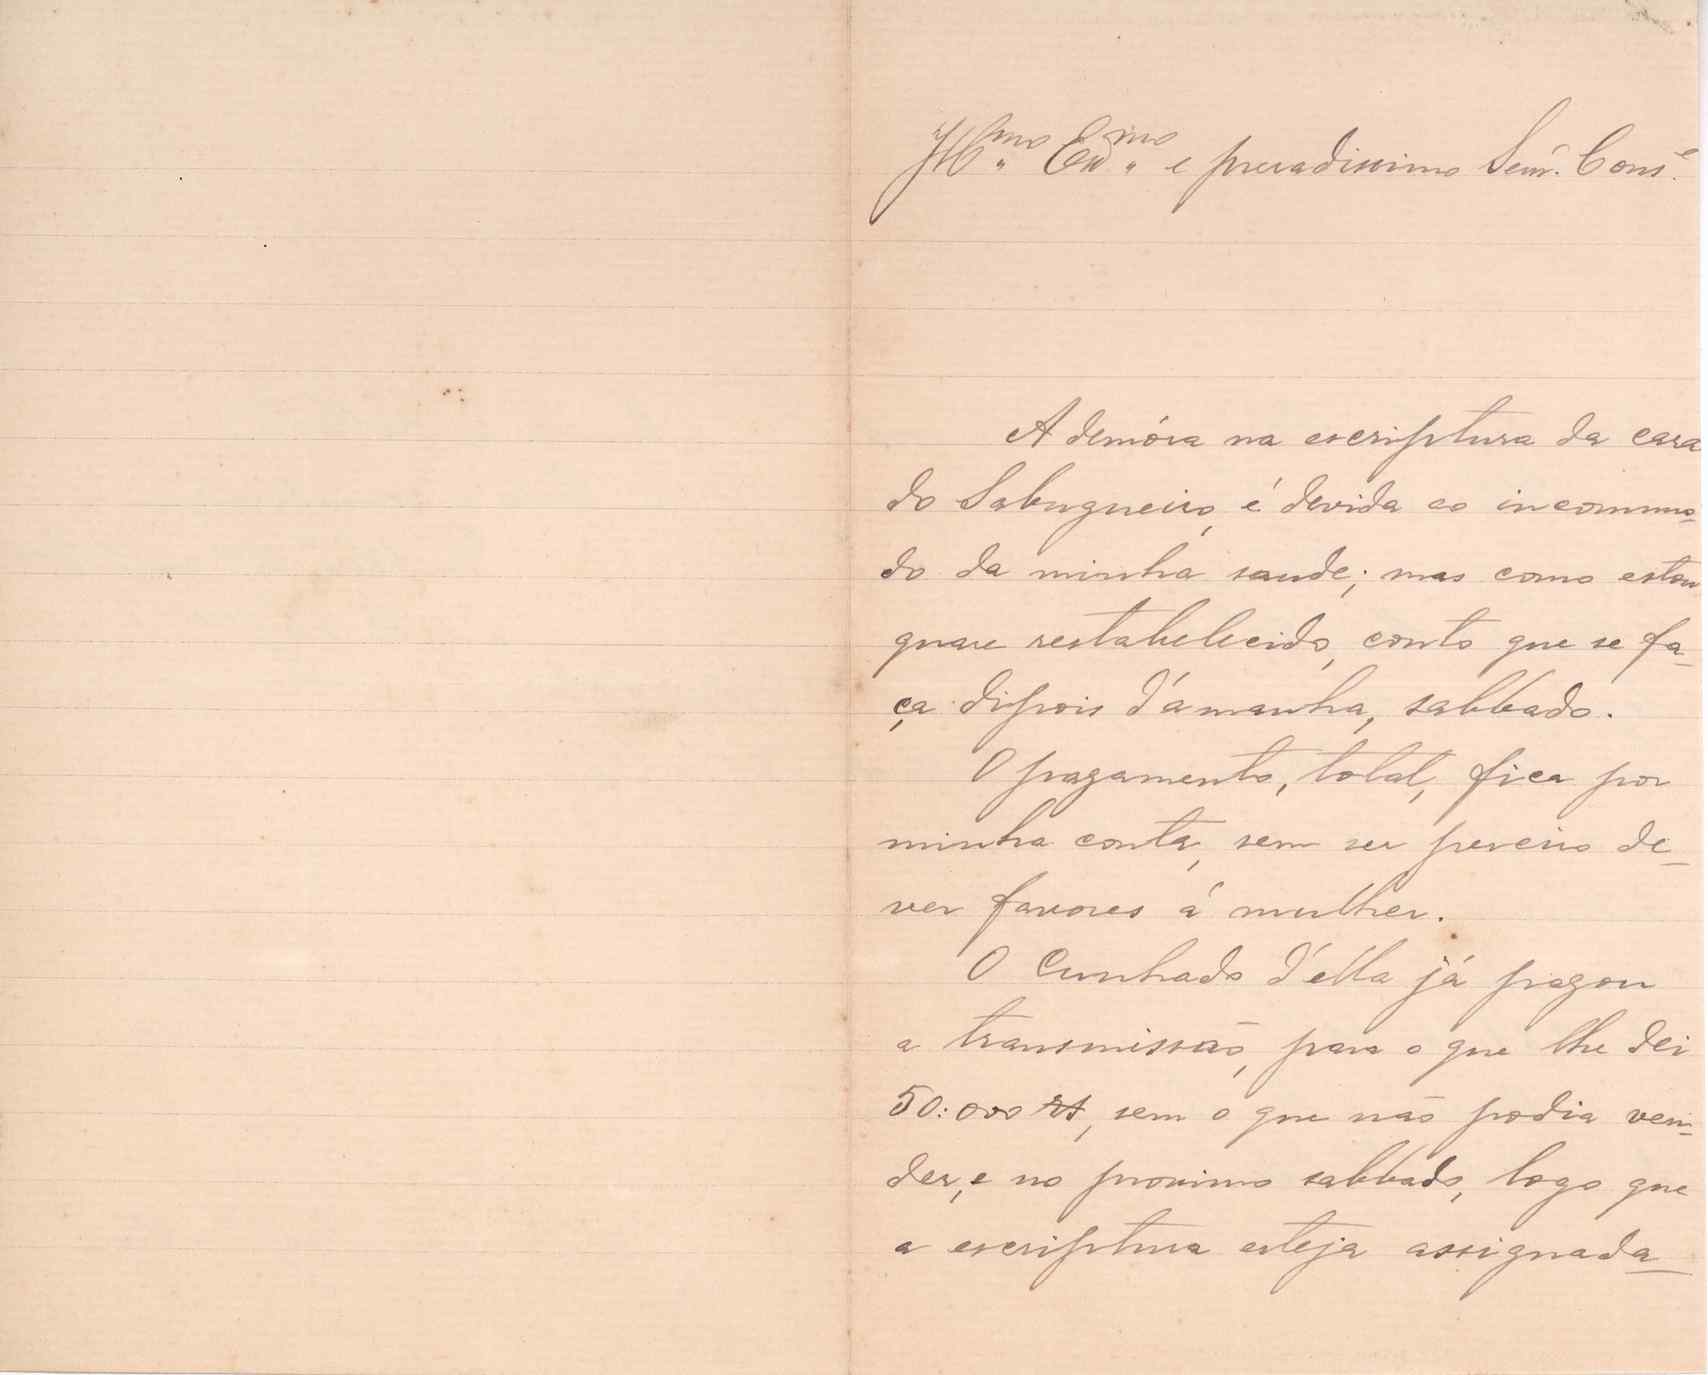 Ill.mo Ex.mo e presadissimo Senr. Cons.e
A demóra na escriptura da casa
do Sabugueiro, é devida ao incommo-
do da minha saude; mas como estou
quase restabelecido, conto que se fa-
ça dipois d'ámanha, sabbado.
O pagamento, total, fica por
minha conta, sem ser perciso de-
ver favores á mulher.
O Cunhado d'ella já pagou
a transmissão, para o que lhe dei
50:000 rs, sem o que não podia ven-
der, e no proximo sabbado, logo que
a escriptura esteja assignada